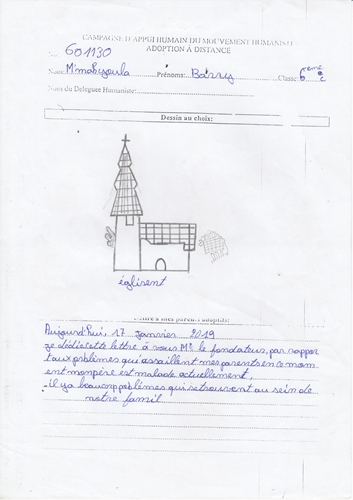 CAMPAGNE D'APPUI HUMAIN DU MOUVEMENT HUMANISTE
ADOPTION À DISTANCE
601130
Nom: M'mahyoula Prénoms: Barry Classe 6eme c
Nom du Deleguee Humaniste:
Dessin au choix:
églisent
Lettre à mes parents adoptifs:
Aujourd'hui 17 janvier 2019
je dédie cette lettre à vous Mr le fondateur, par rappor
t aux problèmes qui assaillent mes parents en ce mom
ent mon père est malade actuellement,
- il y a beaucoup problèmes qui se trouvent au sein de
notre famil